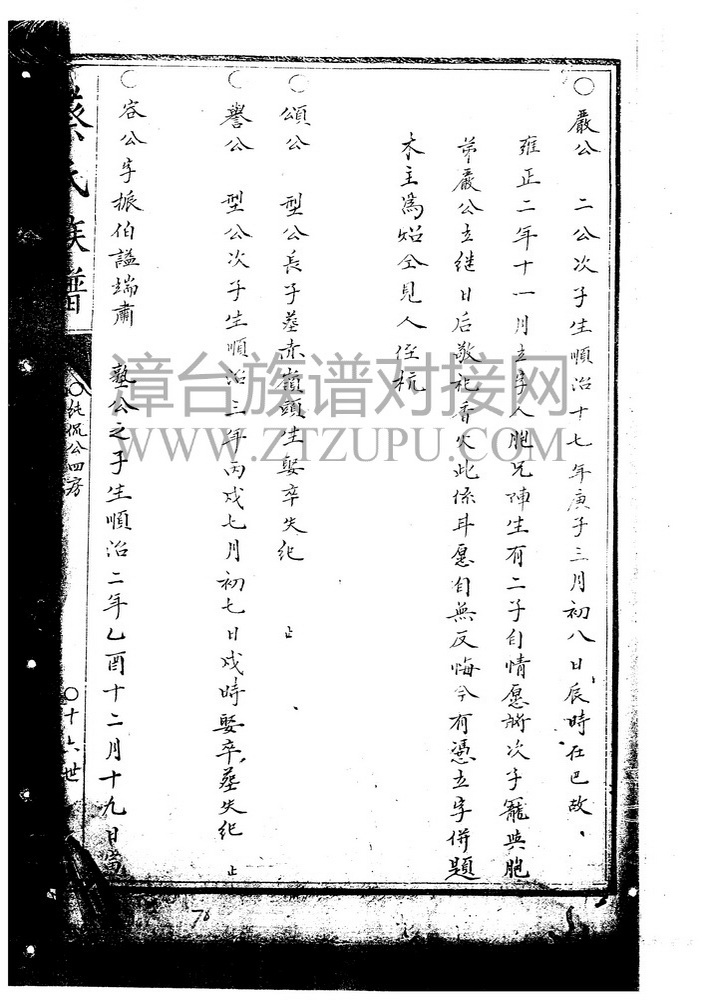 ○嚴公　二公次子生順治十七年庚子三月初八日辰時在巴故
雍正二年十一月立字人胞兄陣生有二子自情愿將次子寵與胞
弟嚴公立継日后敬祀香火此係耳愿自無反悔今有憑立字併題
木主為炤仝見人侄杭
○頌公　型公長子葬赤嶺頭生娶卒失紀　止
○譽公　型公次子生順治三年丙戌七月初七日戌時娶卒葬失紀　止
○容公字振伯謚端肅　塾公之子生順治二年乙酉十二月十九日當
蔡氏族譜　○純侃公四房　○十六世
漳台族谱对接网
WWW.ZTZUPU.COM
76